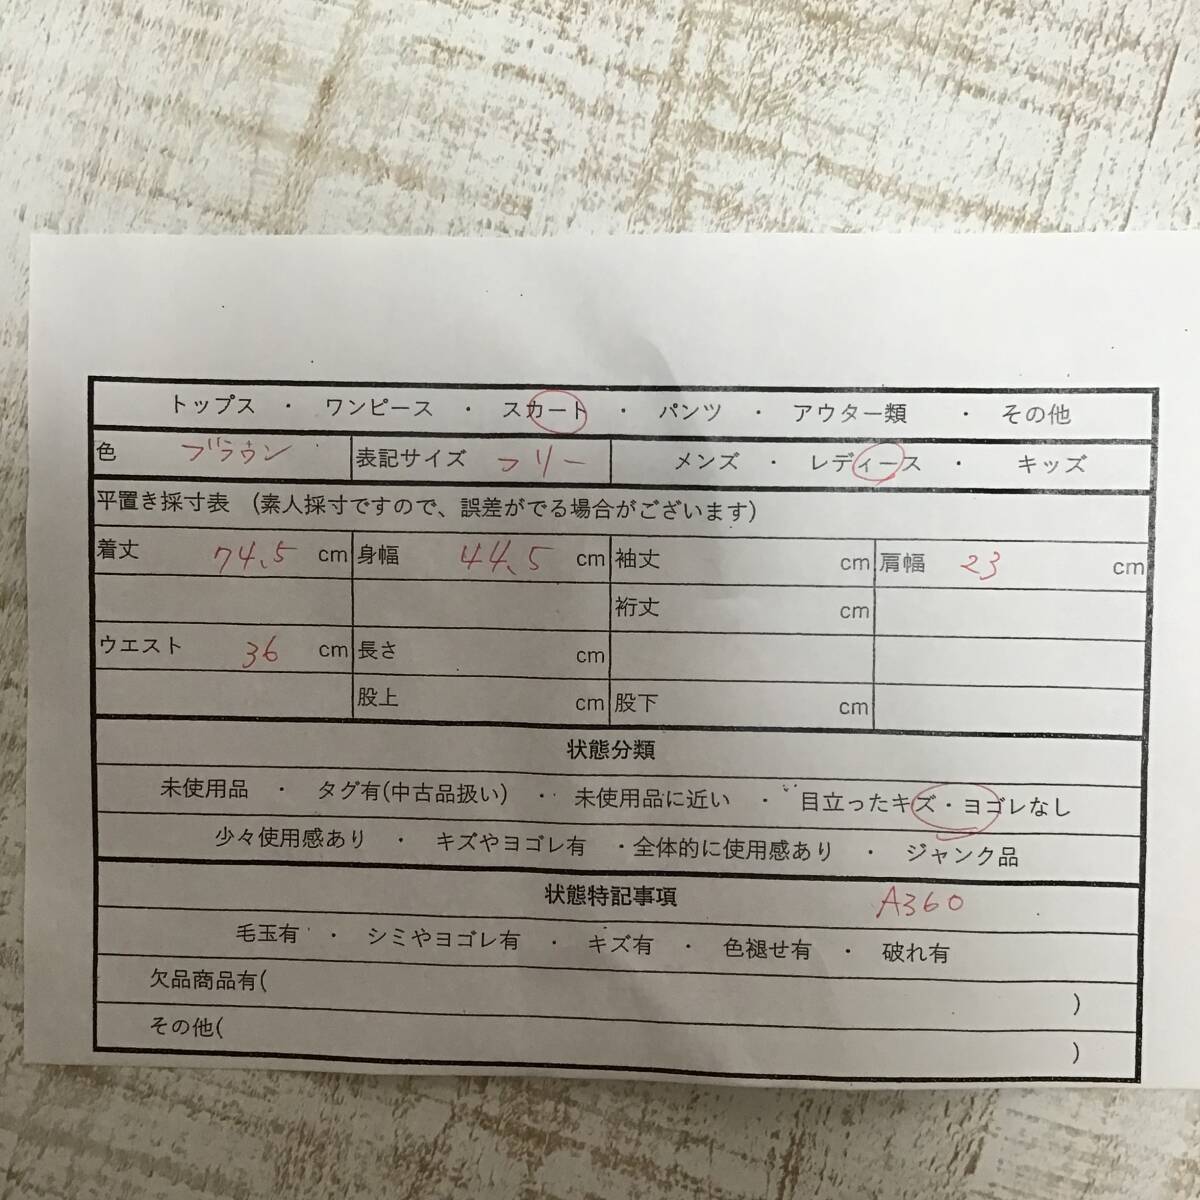 トップス ・ ワンピース ・ スカート ・ パンツ ・ アウター類 ・ その他
色 ブラウン 表記サイズ フリー メンズ ・ レディース ・ キッズ
平置き採寸表 (素人採寸ですので、誤差がでる場合がございます)
着丈 74.5 cm 身幅 44.5 cm 袖丈 cm 肩幅 23 cm
裄丈 cm
ウエスト 36 cm 長さ cm
股上 cm 股下 cm
状態分類
未使用品 ・ タグ有(中古品扱い) ・ 未使用品に近い ・ 目立ったキズ・ヨゴレなし
少々使用感あり ・ キズやヨゴレ有 ・全体的に使用感あり ・ ジャンク品
状態特記事項 A360
毛玉有 ・ シミやヨゴレ有 ・ キズ有 ・ 色褪せ有 ・ 破れ有
欠品商品有( )
その他( )